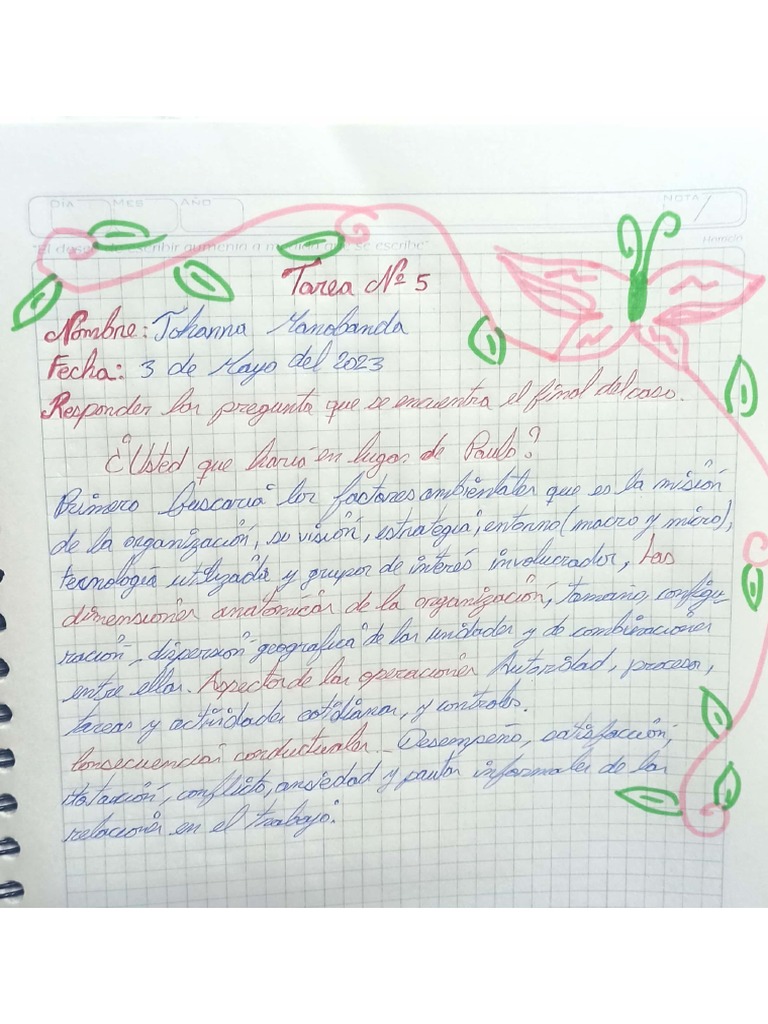 DÍA MES AÑO NOTA
"El deseo de escribir aumenta a medida que se escribe"
Tarea Nº 5
Nombre: Johanna Manobanda
Fecha: 3 de Mayo del 2023
Responder las pregunta que se encuentra el final del caso.
¿Usted que haria en lugar de Paulo?
Primero buscaria los factores ambientales que es la misión
de la organización, su visión, estrategia, entorno (macro y micro),
tecnologia utilizada y grupos de interés involucrados, Las
dimensiones anatómicas de la organización, Tamaño, configu-
ración, dispersión geografica de las unidades y de combinaciones
entre ellas. Aspectos de las operaciones Autoridad, procesos,
tareas y actividades cotidianas, y controles.
Consecuencias conductuales. Desempeño, satisfacción,
rotación, conflicto, ansiedad y pautas informales de las
relaciones en el trabajo.